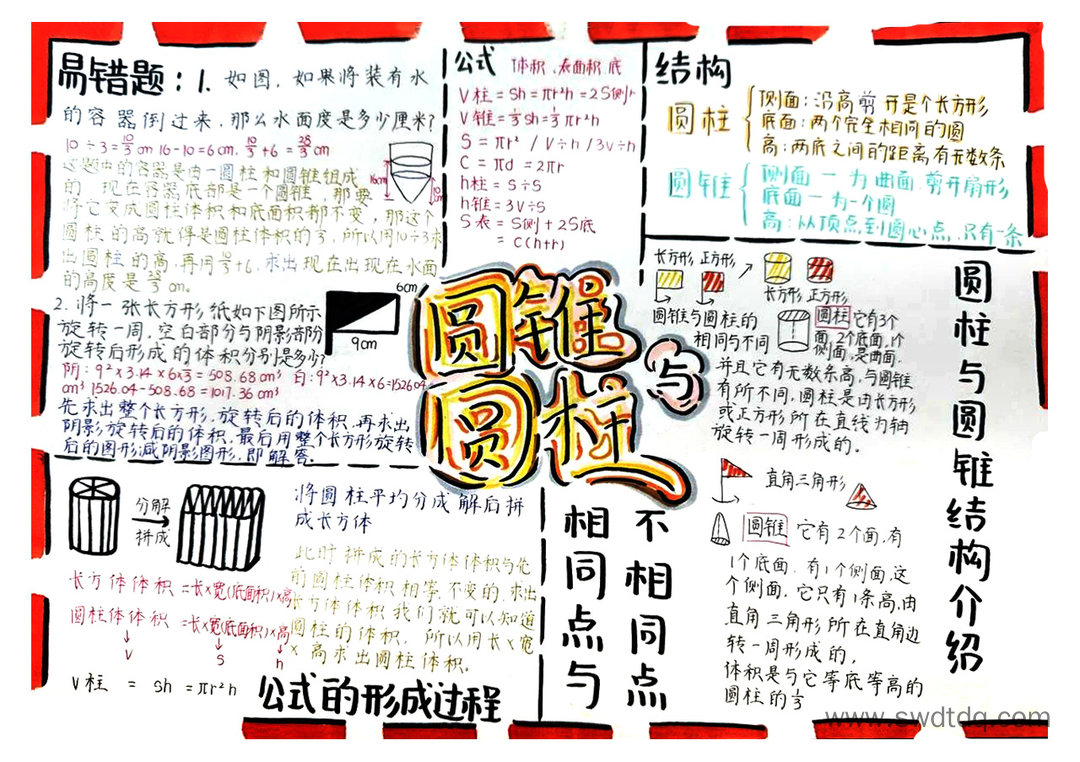 易错题:1. 如图,如果将装有水
的容器倒过来,那么水面度是多少厘米?
10÷3=10/3cm 16-10=6cm. 10/3+6=28/3cm
这题中的容器是由一圆柱和圆锥组成
的 现在容器底部是一个圆锥,那要
将它变成圆柱体积和底面积都不变,那这个
圆柱的高就得是圆柱体积的1/3,所以用10÷3求
出圆柱的高,再用10/3+6,求出现在出现在水面
的高度是28/3cm.
16cm
10cm
2. 将一张长方形纸如下图所示
旋转一周,空白部分与阴影部分
旋转后形成的体积分别是多少?
6cm
9cm
阴:9²×3.14×6×1/3=508.68cm³ 白:9²×3.14×6=1526.04
cm³ 1526.04-508.68=1017.36cm³
先求出整个长方形,旋转后的体积,再求出
阴影旋转后的体积,最后用整个长方形旋转
后的图形减阴影图形,即解答.
公式 体积、表面积、底
V柱=Sh=πr²h=2S侧r
V锥=1/3Sh=1/3πr²h
S=πr²/V÷h/3V÷h
C=πd=2πr
h柱=S÷S
h锥=3V÷S
S表=S侧+2S底
=C(h+r)
结构
圆柱
侧面:沿高剪开是个长方形
底面:两个完全相同的圆
高:两底之间的距离有无数条
圆锥
侧面一为曲面,剪开扇形
底面一为一个圆
高:从顶点到圆心点,只有一条
圆锥
与
圆柱
长方形,正方形
长方形 正方形
圆锥与圆柱的
相同与不同
圆柱 它有3个
面,2个底面,1个
侧面,是曲面.
并且它有无数条高,与圆锥
有所不同,圆柱是由长方形
或正方形所在直线为轴
旋转一周形成的.
直角三角形
圆锥 它有2个面,有
1个底面,有1个侧面,这
个侧面,它只有1条高,由
直角三角形所在直角边
转一周形成的,
体积是与它等底等高的
圆柱的1/3
圆柱与圆锥结构介绍
不相同点
相同点与
分解
拼成
将圆柱平均分成解后拼
成长方体
此时拼成的长方体体积与先
前圆柱体积相等,不变的,求出
长方体体积我们就可以知道
圆柱的体积,所以用长×宽
×高求出圆柱体积.
长方体体积=长×宽(底面积)×高
圆柱体体积=长×宽(底面积)×高
V S h
V柱=Sh=πr²h
公式的形成过程
www.swdtdq.com